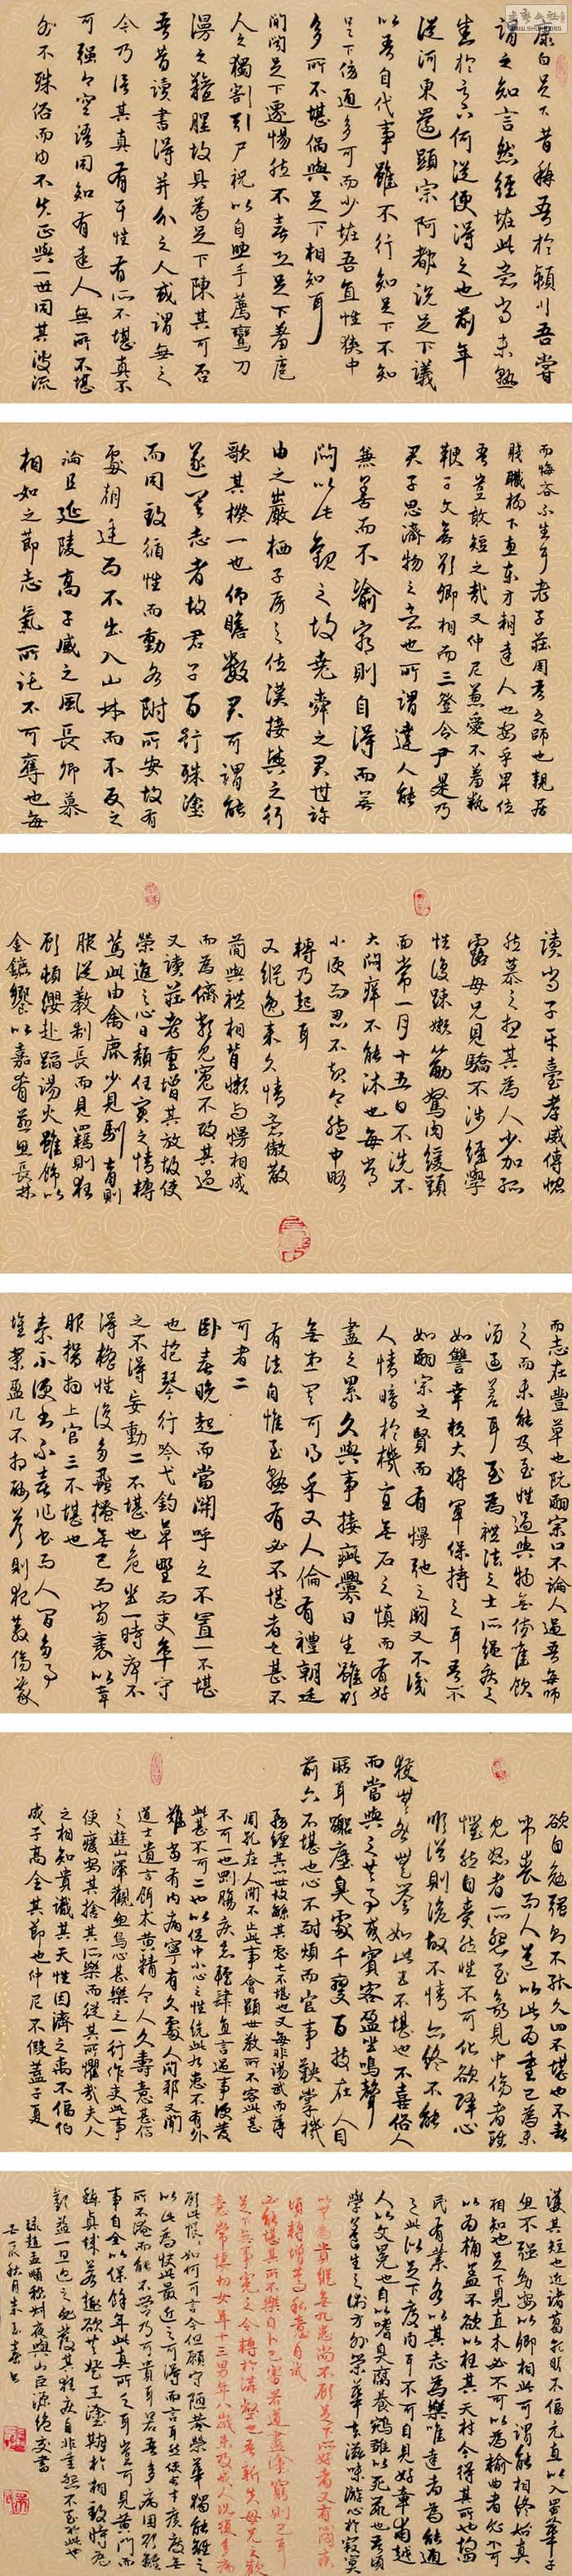 康白足下昔稱吾於潁川吾嘗
謂之知言然經怪此意尚未熟
悉於足下何從便得之也前年
從河東還顯宗阿都說足下議
以吾自代事雖不行知足下不知
足下傍通多可而少怪吾直性狹中
多所不堪偶與足下相知耳
間聞足下遷惕然不喜恐足下羞庖
人之獨割引尸祝以自助手薦鸞刀
漫之羶腥故具為足下陳其可否
吾昔讀書得并介之人或謂無之
今乃信其真有耳性有所不堪真不
可強今空語同知有達人無所不堪
外不殊俗而內不失正與一世同其波流
而悔吝不生耳老子莊周吾之師也親居
賤職柳下惠東方朔達人也安乎卑位
吾豈敢短之哉又仲尼兼愛不羞執
鞭子文無欲卿相而三登令尹是乃
君子思濟物之意也所謂達人能
兼善而不渝窮則自得而無
悶以此觀之故堯舜之君世許
由之巖栖子房之佐漢接輿之行
歌其揆一也仰瞻數君可謂能
遂其志者故君子百行殊塗
而同致循性而動各附所安故有
處朝廷而不出入山林而不反之
論且延陵高子臧之風長卿慕
相如之節志氣所託不可奪也每
讀尚子平臺孝威傳慨
然慕之想其為人少加孤
露母兄見驕不涉經學
性復疎嬾筋駑肉緩頭
面常一月十五日不洗不
大悶癢不能沐也每常
小便而忍不起令胞中略
轉乃起耳
又縱逸來久情意傲散
簡與禮相背嬾與慢相成
而為儕類見寬不攻其過
又讀莊老重增其放故使
榮進之心日頹任實之情轉
篤此由禽鹿少見馴育則
服從教制長而見羈則狂
顧頓纓赴蹈湯火雖飾以
金鑣饗以嘉肴逾思長林
而志在豐草也阮嗣宗口不論人過吾每師
之而未能及至性過人與物無傷唯飲
酒過差耳至為禮法之士所繩疾之
如讐幸賴大將軍保持之耳吾不
如嗣宗之賢而有慢弛之闕又不識
人情暗於機宜無石之慎而有好
盡之累久與事接疵釁日生雖欲
無患其可得乎又人倫有禮朝廷
有法自惟至熟有必不堪者七甚不
可者二
臥喜晚起而當關呼之不置一不堪
也抱琴行吟弋釣草野而吏卒守
之不得妄動二不堪也危坐一時痺不
得搖性復多蝨搔無已而當裹以章
服揖拜上官三不堪也
素不便書不喜作書而人間多事
堆案盈几不相酬答則犯教傷義
欲自勉強則不能久四不堪也不喜
弔喪而人道以此為重已為未
見恕者所怨至欲見中傷者雖
懼然自責然性不可化欲降心
順俗則詭故不情亦終不能
獲無咎無譽如此五不堪也不喜俗人
而當與之共事或賓客盈坐鳴聲
聒耳囂塵臭處千變百技在人目
前六不堪也心不耐煩而官事鞅掌機
務纏其心世故繁其慮七不堪也又每非湯武而薄
周孔在人間不止此事會顯世教所不容此甚
不可一也剛腸疾惡輕肆直言遇事便發
此甚不可二也以促中小心之性統此九患不有外
難當有內病寧可久處人間邪又聞
道士遺言餌朮黃精令人久壽意甚信
之遊山澤觀魚鳥心甚樂之一行作吏此事
便廢安能捨其所樂而從其所懼哉夫人
之相知貴識其天性因而濟之禹不偪伯
成子高全其節也仲尼不假蓋子夏
護其短也近諸葛孔明不偪元直以入蜀華子
魚不強幼安以卿相此可謂能相終始真
相知也足下見直木必不可以為輪曲者不可
以為桷蓋不欲以枉其天材令得其所也故四
民有業各以其志為樂唯達者為能通
之此足下度內耳不可自見好章甫越
人以文冕也自以嗜臭腐養鴛雛以死鼠也吾頃
學養生之術方外榮華去滋味游心於寂寞
以無為貴縱無九患尚不顧足下所好者又有悶疾
頃轉增篤私意自試
必不能堪其所不樂自卜已審若道盡塗窮則已耳
足下無事冤之令轉於溝壑也吾新失母兄之歡
意常悽切女年十三男年八歲未及成人況復多病
顧此悢悢如何可言今但願守陋巷